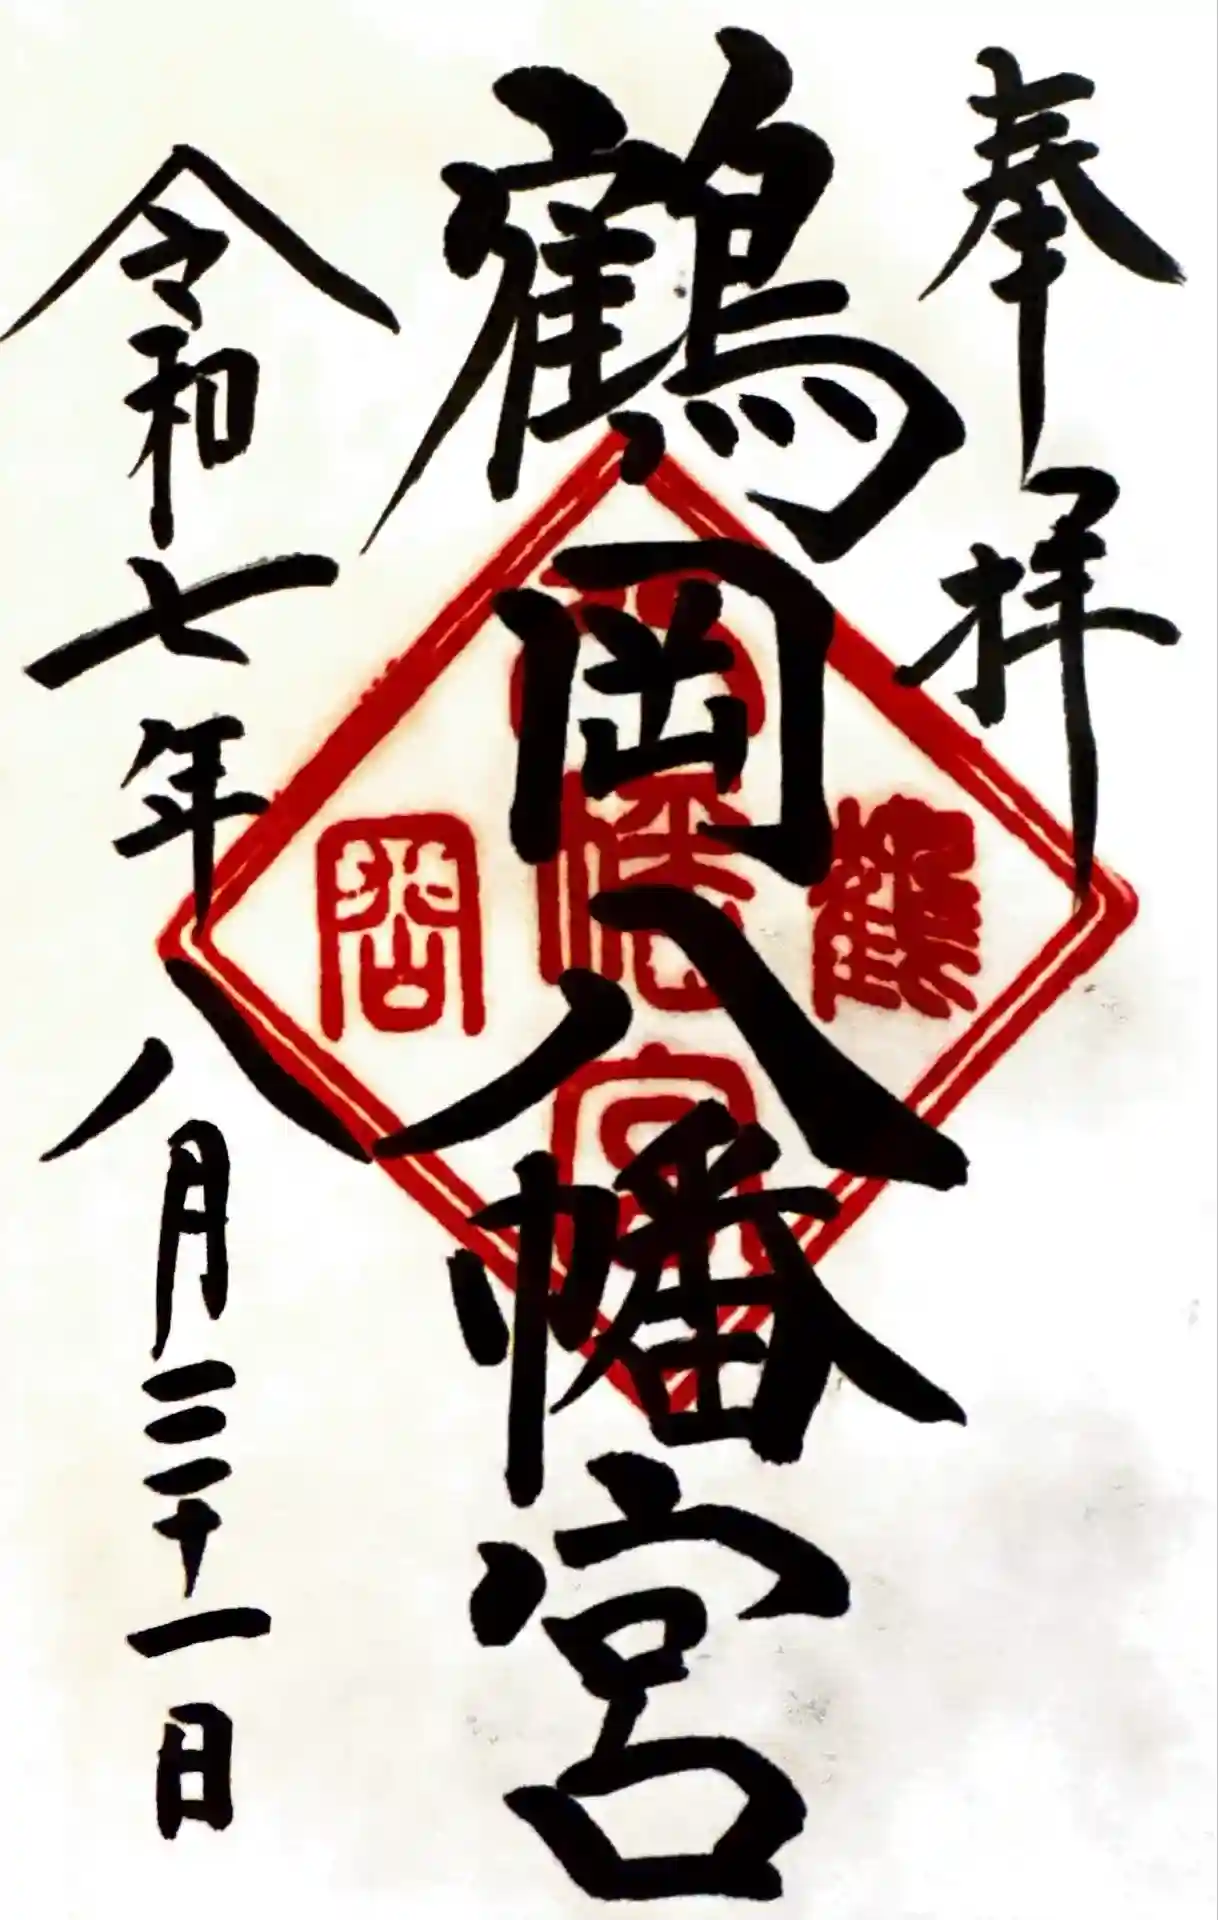 奉拝
鶴岡八幡宮
令和七年八月三十一日
鶴
八
幡
宮
岡